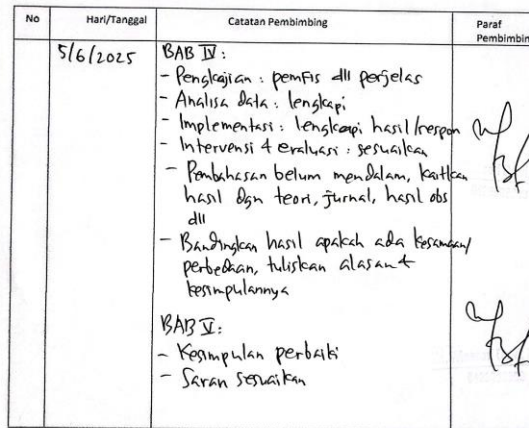 No Hari/Tanggal Catatan Pembimbing Paraf
Pembimbing
5/6/2025 BAB IV :
- Pengkajian : pemfis dll perjelas
- Analisa data : lengkapi
- Implementasi : lengkapi hasil/respon
- Intervensi & evaluasi : sesuaikan
- Pembahasan belum mendalam, kaitkan
hasil dgn teori, jurnal, hasil obs
dll
- Bandingkan hasil apakah ada kesamaan/
perbedaan, tuliskan alasan &
kesimpulannya
BAB V :
- Kesimpulan perbaiki
- Saran sesuaikan